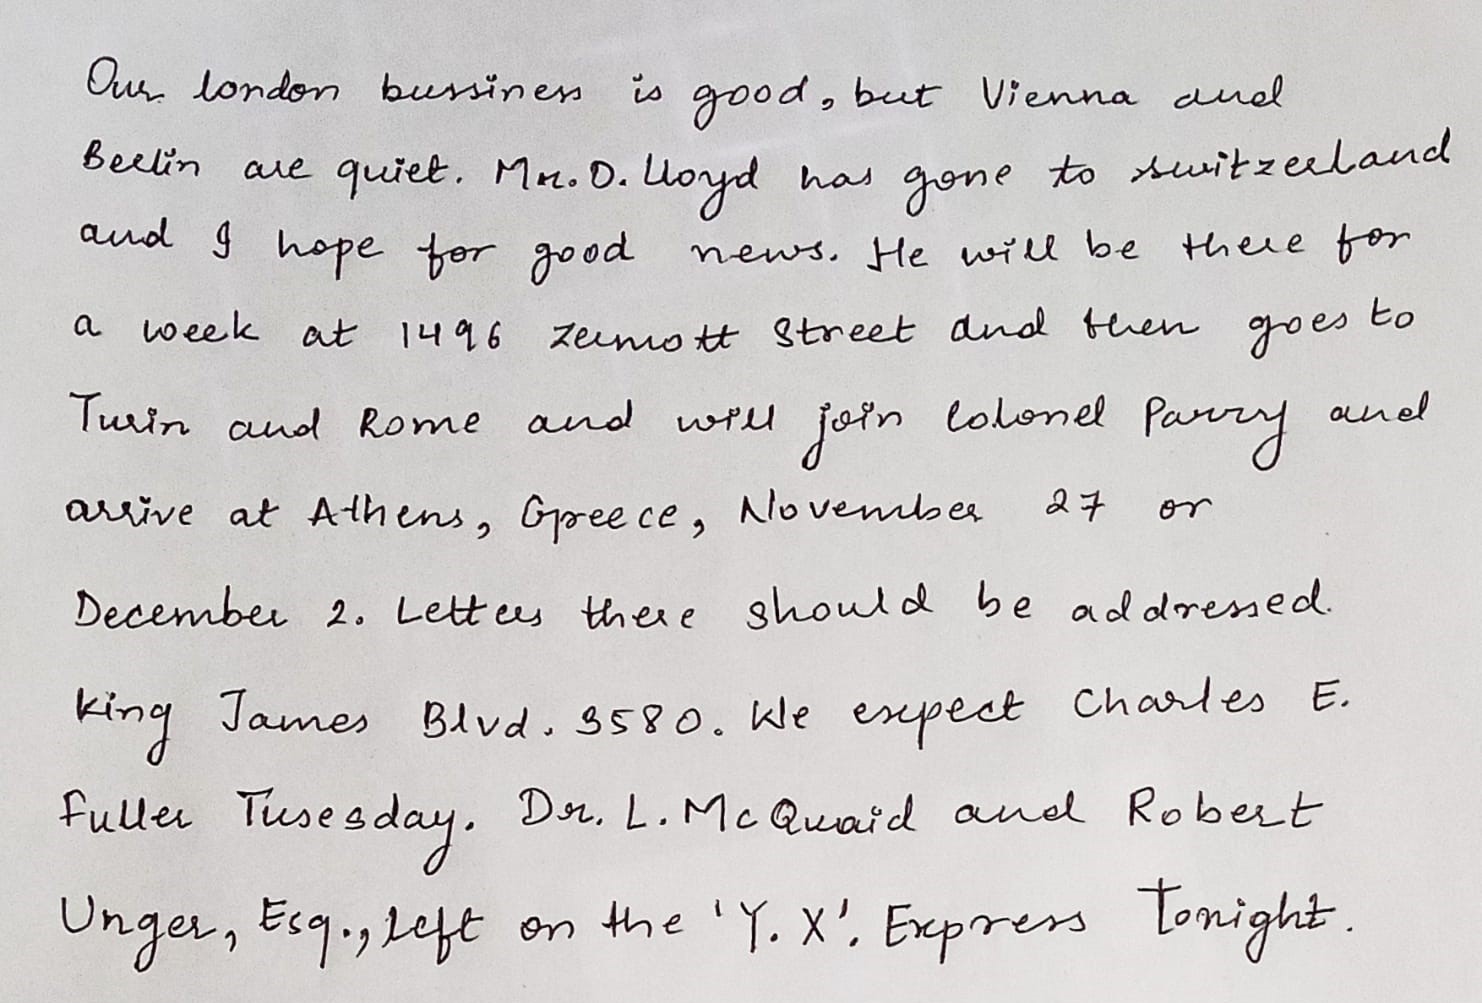 Our london bussiness is good, but Vienna and
Berlin are quiet. Mr. D. Lloyd has gone to switzerland
and I hope for good news. He will be there for
a week at 1496 zermott Street and then goes to
Turin and Rome and will join Colonel Parry and
arrive at Athens, Greece, November 27 or
December 2. Letters there should be addressed.
king James Blvd. 3580. We expect Charles E.
fuller Tusesday. Dr. L. McQuaid and Robert
Unger, Esq., left on the 'Y. X'. Express Tonight.